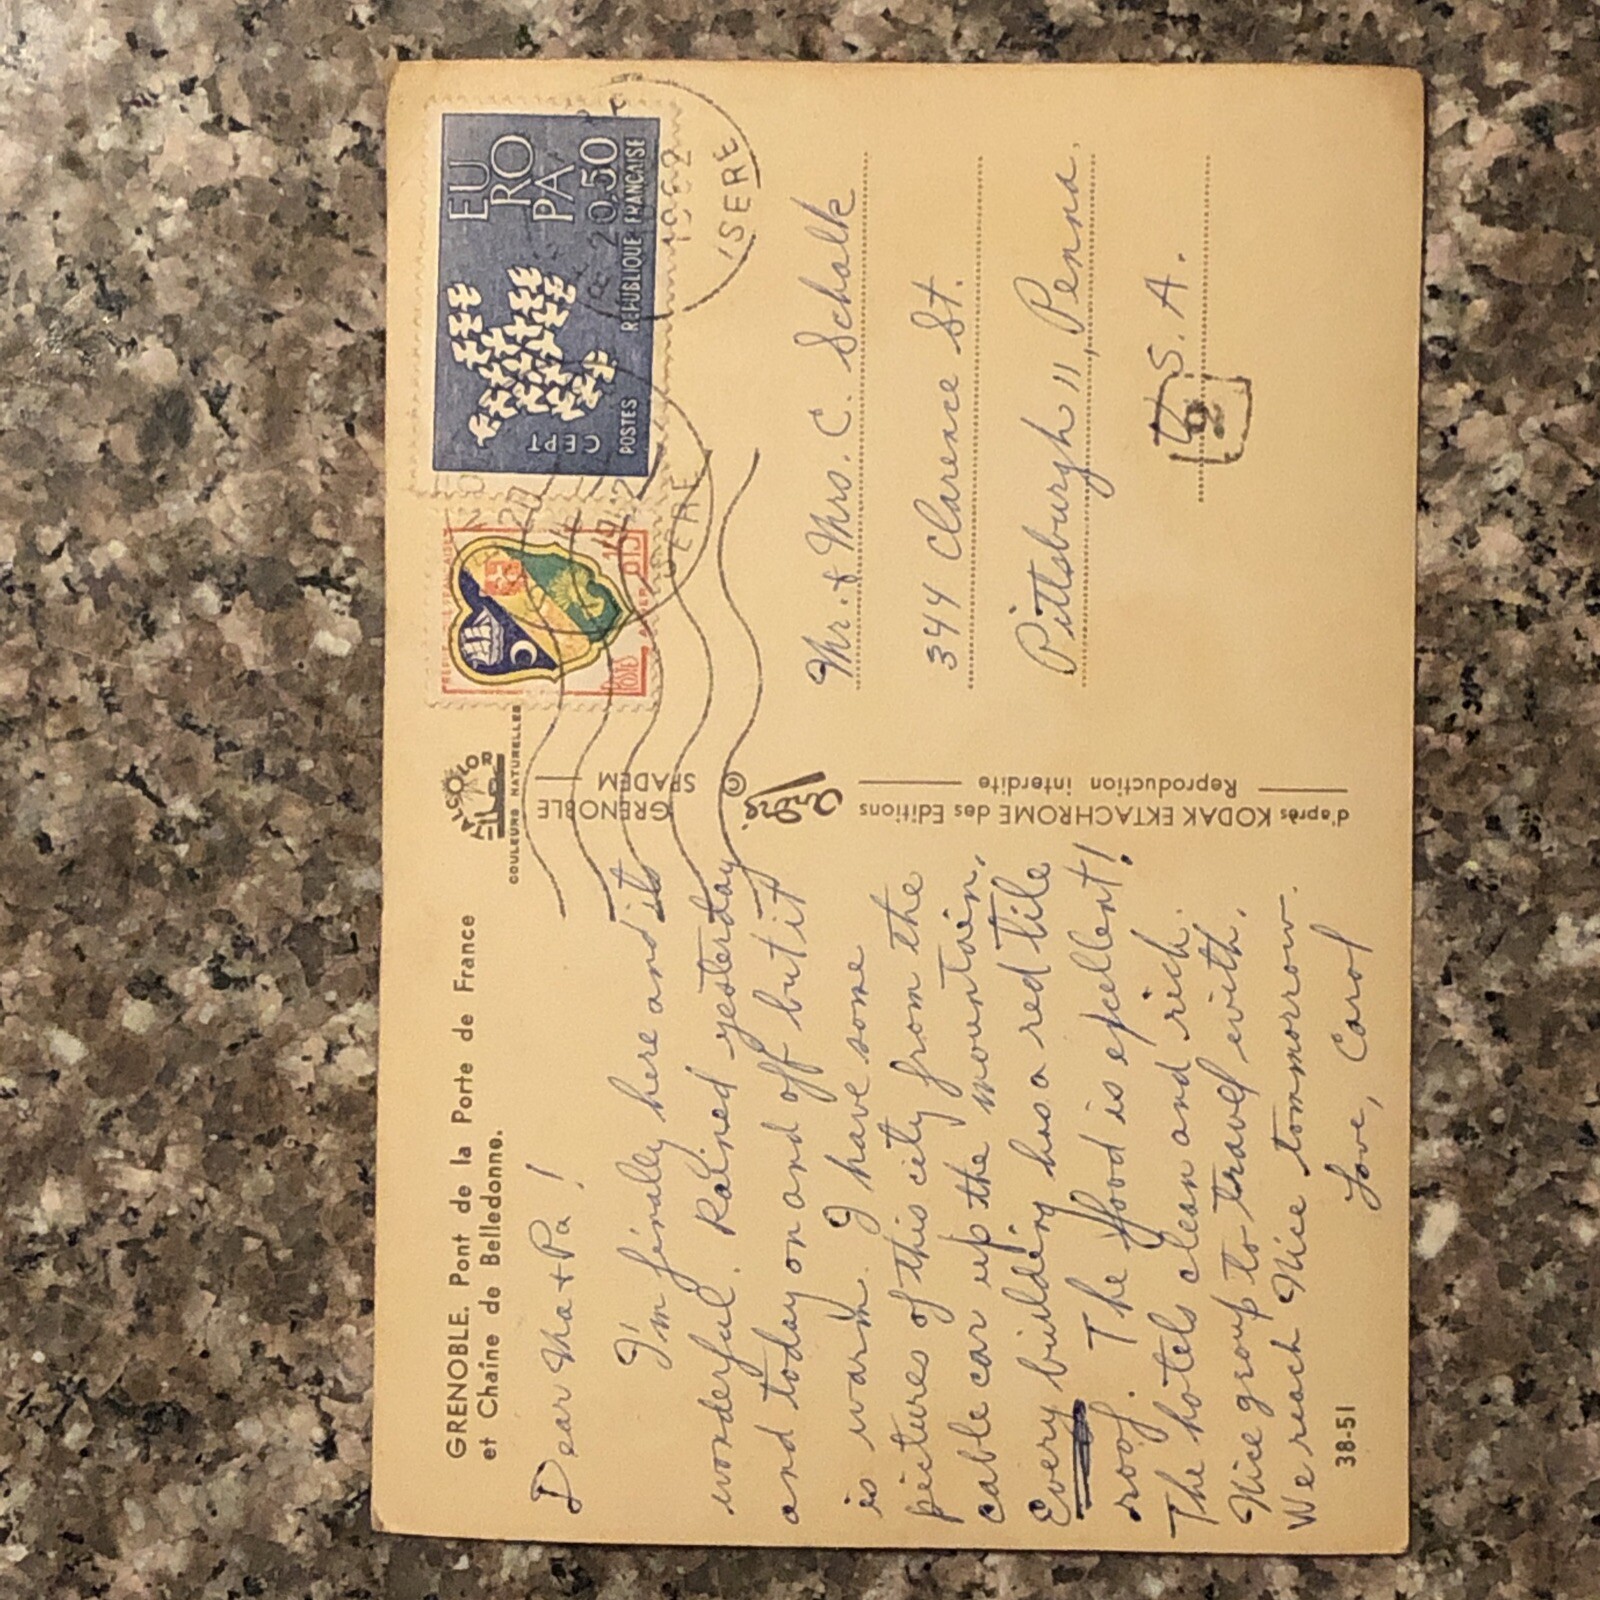 GRENOBLE. Pont de la Porte de France
et Chaîne de Belledonne.
Dear Ma + Pa!
I'm finally here and its
wonderful. Rained yesterday
and today on and off but it
is warm. I have some
pictures of this city from the
cable car up the mountain.
Every building has a red tile
roof. The food is excellent!
The hotels clean and rich.
Nice group to travel with.
We reach Nice tommorrow.
Love, Carol
38-51
ALCOLOR
COULEURS NATURELLES
GRENOBLE
SPADEM
©
André
d'après KODAK EKTACHROME des Editions
Reproduction interdite
POSTES
0,15
EUROPA
0,50
CEPT
POSTES REPUBLIQUE FRANÇAISE
1962
ISERE
ISERE
Mr. & Mrs. C. Schalk
344 Clarence St.
Pittsburgh 11, Penna.
U.S.A.